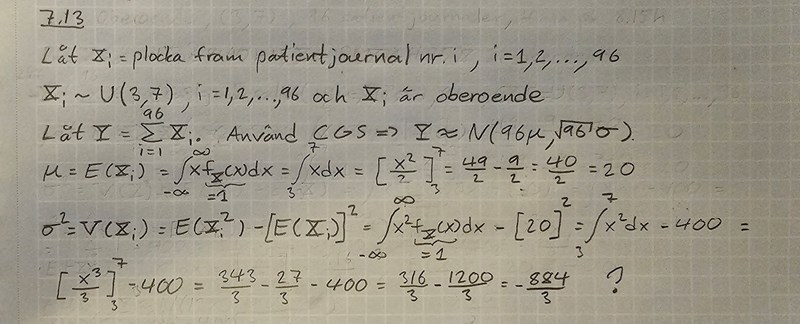 7.13
Låt X_i = plocka fram patientjournal nr. i, i=1,2,...,96
X_i ~ U(3,7), i=1,2,...,96 och X_i är oberoende
Låt Y = ∑_{i=1}^{96} X_i. Använd CGS => Y ≈ N(96μ, √96 σ).
μ = E(X_i) = ∫_{-∞}^{∞} x f_X(x) dx = ∫_3^7 x dx = [x²/2]_3^7 = 49/2 - 9/2 = 40/2 = 20
=1
σ² = V(X_i) = E(X_i²) - [E(X_i)]² = ∫_{-∞}^{∞} x² f_X(x) dx - [20]² = ∫_3^7 x² dx - 400 =
=1
[x³/3]_3^7 - 400 = 343/3 - 27/3 - 400 = 316/3 - 1200/3 = -884/3 ?